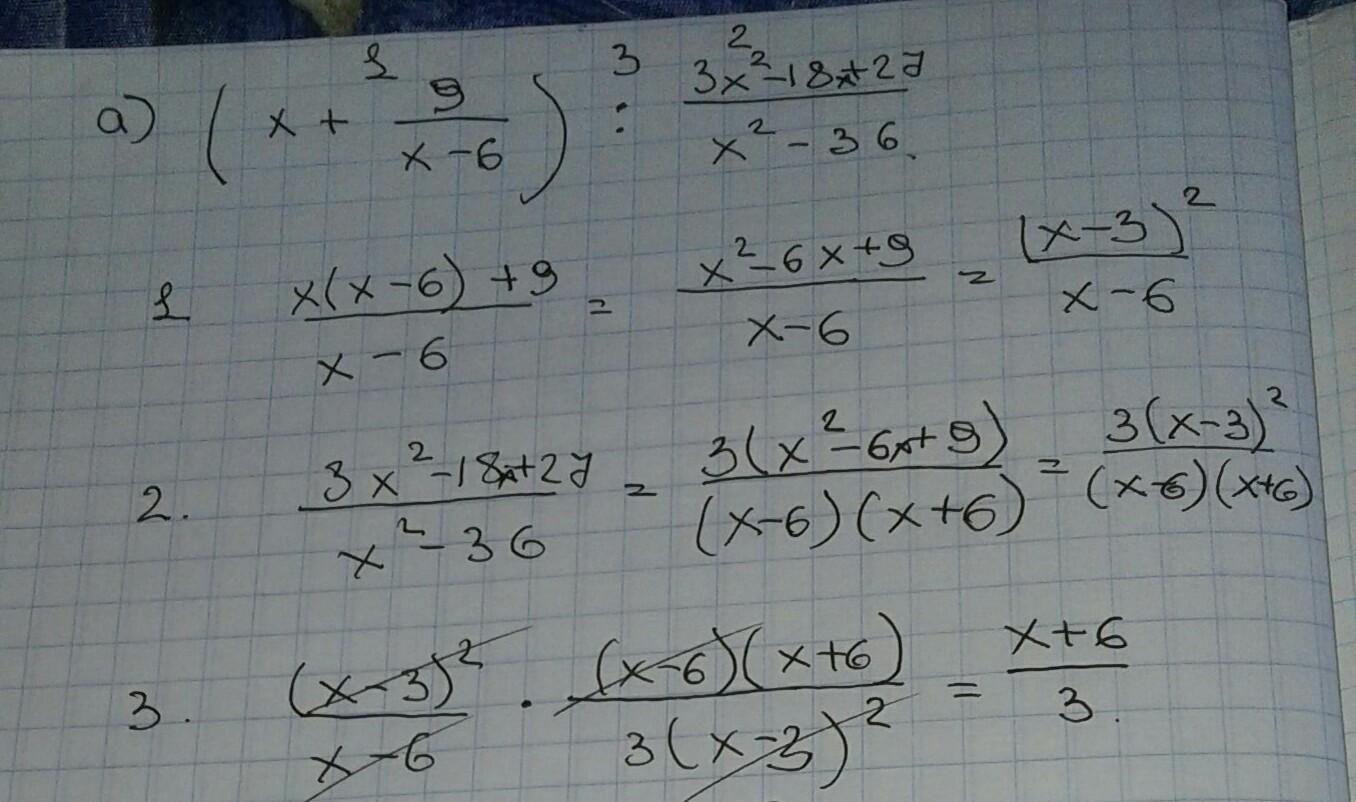 a) (x + 9/(x-6)) : (3x²-18x+27)/(x²-36)
1 2 3
1 (x(x-6)+9)/(x-6) = (x²-6x+9)/(x-6) = (x-3)²/(x-6)
2. (3x²-18x+27)/(x²-36) = 3(x²-6x+9)/((x-6)(x+6)) = 3(x-3)²/((x-6)(x+6))
3. (x-3)²/(x-6) · (x-6)(x+6)/(3(x-3)²) = (x+6)/3.